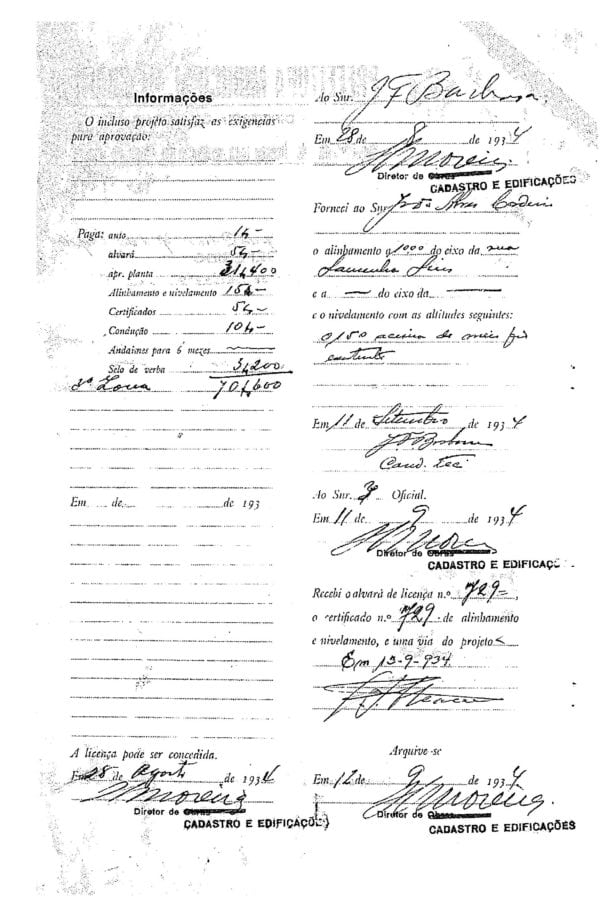 Informações
O incluso projéto satisfaz as exigencias
para aprovação:
Paga: auto 1$-
alvará 5$-
apr. planta 31$400
Alinhamento e nivelamento 15$-
Certificados 5$-
Condução 10$-
Andaimes para 6 mezes
Selo de verba 3$200
3ª Zona 70$600
Em de de 193
A licença pode ser concedida.
Em 28 de Agosto de 1934
Moreira
Diretor de Obras
CADASTRO E EDIFICAÇÕES
Ao Snr. J F Barbosa
Em 28 de 8 de 1934
Moreira
Diretor de Obras
CADASTRO E EDIFICAÇÕES
Forneci ao Snr. João
o alinhamento a do eixo da rua
e a — do eixo da —
e o nivelamento com as altitudes seguintes:
0,150 acima do meio fio
existente
Em 11 de Setembro de 1934
J F Barbosa
Cand. Tec.
Ao Snr. 3º Oficial.
Em 11 de 9 de 1934
Diretor de Obras
CADASTRO E EDIFICAÇ
Recebi o alvará de licença n.º 729,
o certificado n.º 729 de alinhamento
e nivelamento, e uma via do projeto
Em 13-9-934
Arquive-se
Em 12 de 9 de 1934
Moreira
Diretor de Obras
CADASTRO E EDIFICAÇÕES